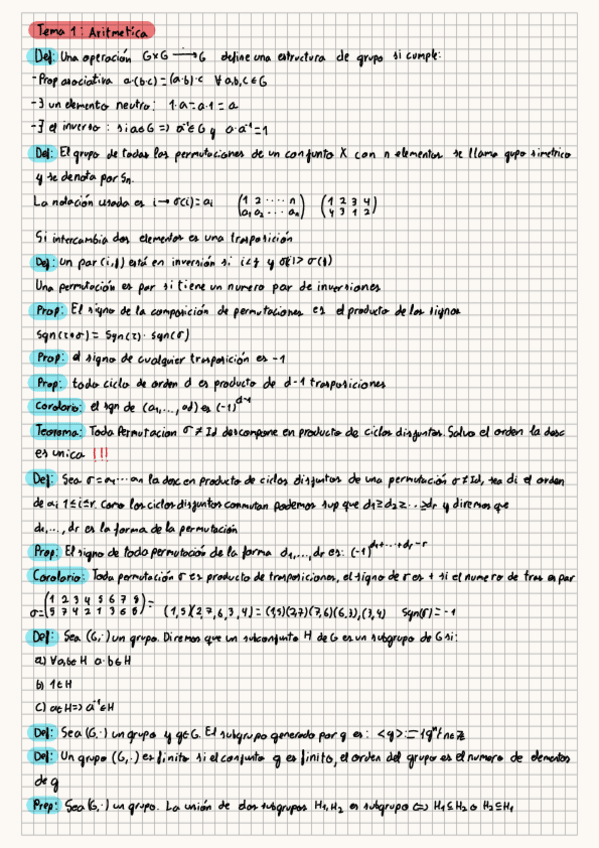 Tema 1: Aritmetica
Def: Una operación G×G → G define una estructura de grupo si cumple:
-Prop asociativa a·(b·c)=(a·b)·c ∀ a,b,c ∈ G
-∃ un elemento neutro: 1·a=a·1=a
-∃ el inverso: si a∈G => a⁻¹∈G y a·a⁻¹=1
Def: El grupo de todas las permutaciones de un conjunto X con n elementos se llama gupo simetrico
y se denota por Sn.
La notación usada es i→σ(i)=ai (1 2 ···· n / a1 a2 ··· an) (1 2 3 4 / 4 3 1 2)
Si intercambia dos elementos es una trasposición
Def: un par (i,j) está en inversión si i<j y σ(i)>σ(j)
Una permutación es par si tiene un numero par de inversiones
Prop: El signo de la composición de permutaciones es el producto de los signos
Sgn(τ∘σ)= Sgn(τ)· sgn(σ)
Prop: el signo de cualquier trasposición es -1
Prop: todo ciclo de orden d es producto de d-1 trasposiciones
Corolario: el sgn de (a1,...,ad) es (-1)^d-1
Teorema: Toda Permutacion σ≠Id descompone en producto de ciclos disjuntos. Salvo el orden la desc
es unica !!!
Def: Sea σ=α1···αn la desc en producto de ciclos disjuntos de una permutación σ≠Id, sea di el orden
de αi 1≤i≤r. Como los ciclos disjuntos conmutan podemos sup que d1≥d2≥··≥dr y diremos que
d1,...,dr es la forma de la permutación
Prop: El signo de toda permutación de la forma d1,...,dr es: (-1)^d1+···+dr-r
Corolario: Toda permutación σ es producto de trasposiciones, el signo de σ es + si el numero de tras es par
σ=(1 2 3 4 5 6 7 8 / 5 7 4 2 1 3 6 8)= (1,5)(2,7,6,3,4)=(1,5)(2,7)(7,6)(6,3),(3,4) Sgn(σ)=-1
Def: Sea (G,·) un grupo. Diremos que un subconjunto H de G es un subgrupo de G si:
a) ∀a,b∈H a·b∈H
b) 1∈H
c) a∈H=> a⁻¹∈H
Def: Sea (G,·) un grupo y g∈G. El subgrupo generado por g es: <g>:={gⁿ/n∈ℤ
Def: Un grupo (G,·) es finito si el conjunto g es finito, el orden del grupo es el numero de elementos
de g
Prop: Sea (G,·) un grupo. La unión de dos subgrupos H1,H2 es subgrupo <=> H1⊆H2 o H2⊆H1